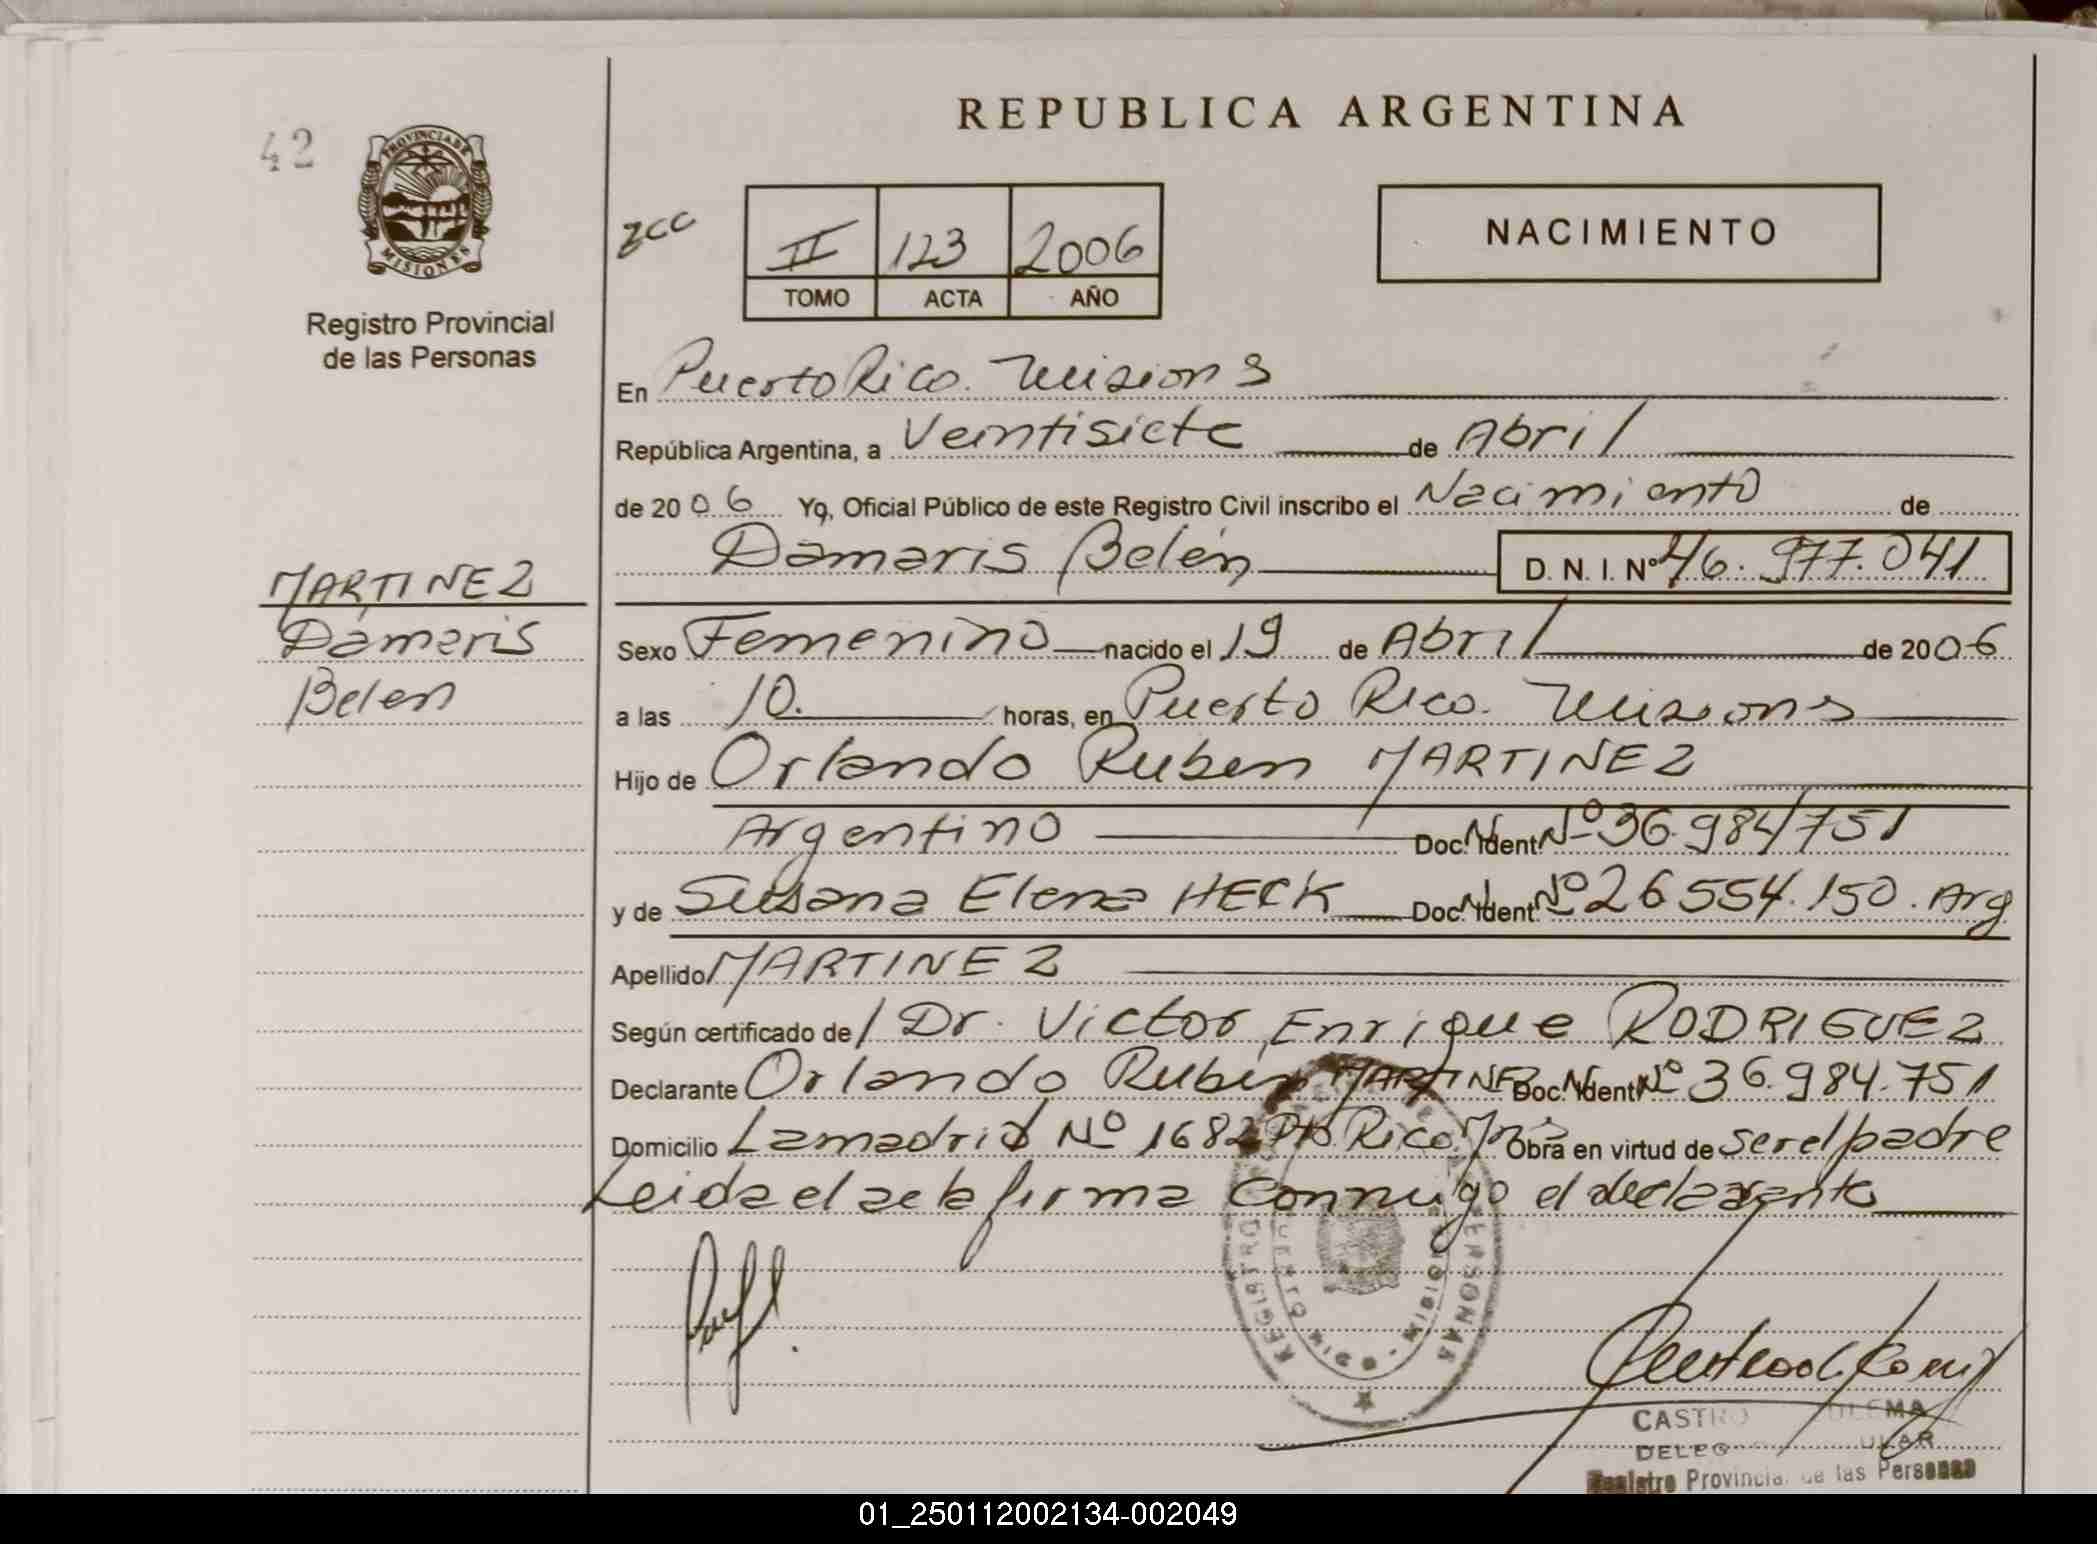 REPUBLICA ARGENTINA
42
PROVINCIA DE
MISIONES
Registro Provincial
de las Personas
zcc
II 123 2006
TOMO ACTA AÑO
NACIMIENTO
En Puerto Rico. Misiones
República Argentina, a Veintisiete de Abril
de 2006 Yo, Oficial Público de este Registro Civil inscribo el Nacimiento de
Damaris Belén D. N. I. Nº 46.977.041
MARTINEZ
Damaris
Belen
Sexo Femenino nacido el 19 de Abril de 2006
a las 10. horas, en Puerto Rico. Misiones
Hijo de Orlando Ruben MARTINEZ
Argentino Doc. Ident Nº 36.984751
y de Susana Elena HECK Doc. Ident Nº 26554.150. Arg
Apellido MARTINEZ
Según certificado de Dr. Victor Enrique RODRIGUEZ
Declarante Orlando Rubén MARTINEZ Doc. Ident Nº 36.984.751
Domicilio Lamadrid Nº 1682 Pto Rico. Mns Obra en virtud de ser el padre
Leida el acta firma conmigo el declarante
REGISTRO PERSONAS
CASTRO
DELEG
Registro Provincial de las Personas
01_250112002134-002049